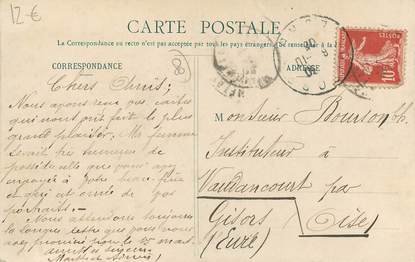 12-€
CARTE POSTALE
La Correspondance au recto n'est pas acceptée par tous les pays étrangers. Se renseigner à la
CORRESPONDANCE
ADRESSE
88
10
Chers Amis;
Nous avons reçu vos cartes
qui nous ont fait le plus
grand plaisir. Ma femme
serait très heureuse de
possible que vous
envoyer à votre
et qui est ornée de vos
portraits.
Nous attendons toujours
la longue lettre que vous nous
avez promise pour le 15 mai
Monsieur Bourson
Instituteur à
Vaudancourt par
Gisors Oise
(Eure)